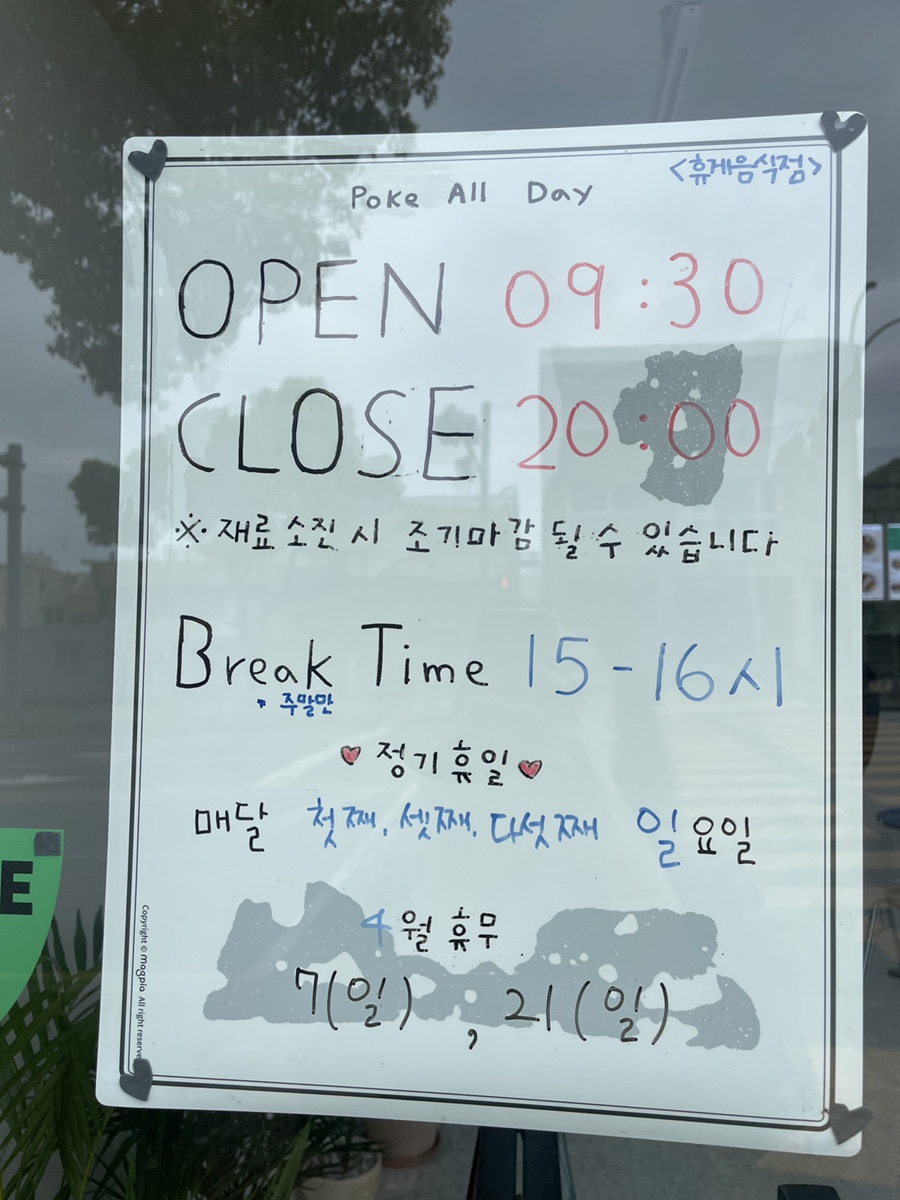 <휴게음식점>
Poke All Day
OPEN 09:30
CLOSE 20:00
※ 재료 소진 시 조기마감 될 수 있습니다
Break Time 15-16시
• 주말만
♥ 정기휴일 ♥
매달 첫째, 셋째, 다섯째 일요일
4월 휴무
7(일), 21(일)
Copyright © magpla All right reserve
E